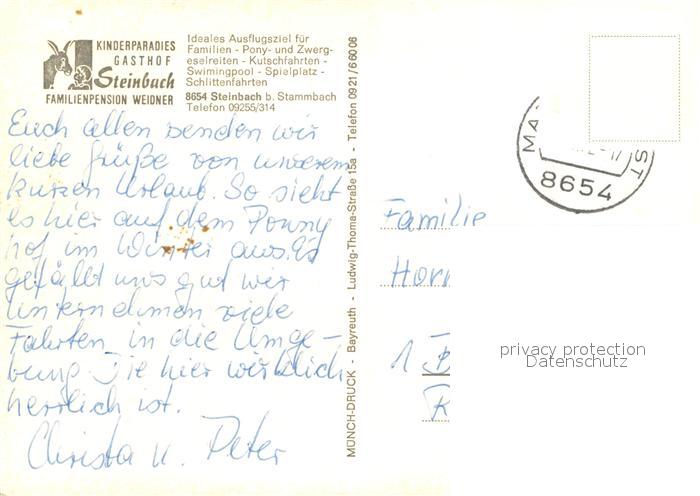 KINDERPARADIES
GASTHOF
Steinbach
FAMILIENPENSION WEIDNER
Ideales Ausflugsziel für
Familien - Pony- und Zwerg-
eselreiten - Kutschfahrten -
Swimingpool - Spielplatz -
Schlittenfahrten
8654 Steinbach b. Stammbach
Telefon 09255/314
Euch allen senden wir
liebe Grüße von unserem
kurzen Urlaub. So sieht
es hier auf dem Ponny
hof im Winter aus. Es
gefällt uns gut wir
unternehmen viele
Fahrten in die Umge-
bung. Die hier wirklich
herrlich ist.
Christa u. Peter
MÜNCH-DRUCK - Bayreuth - Ludwig-Thoma-Straße 15a - Telefon 0921/66006
8654
Familie
Horn
1 B
R
privacy protection
Datenschutz